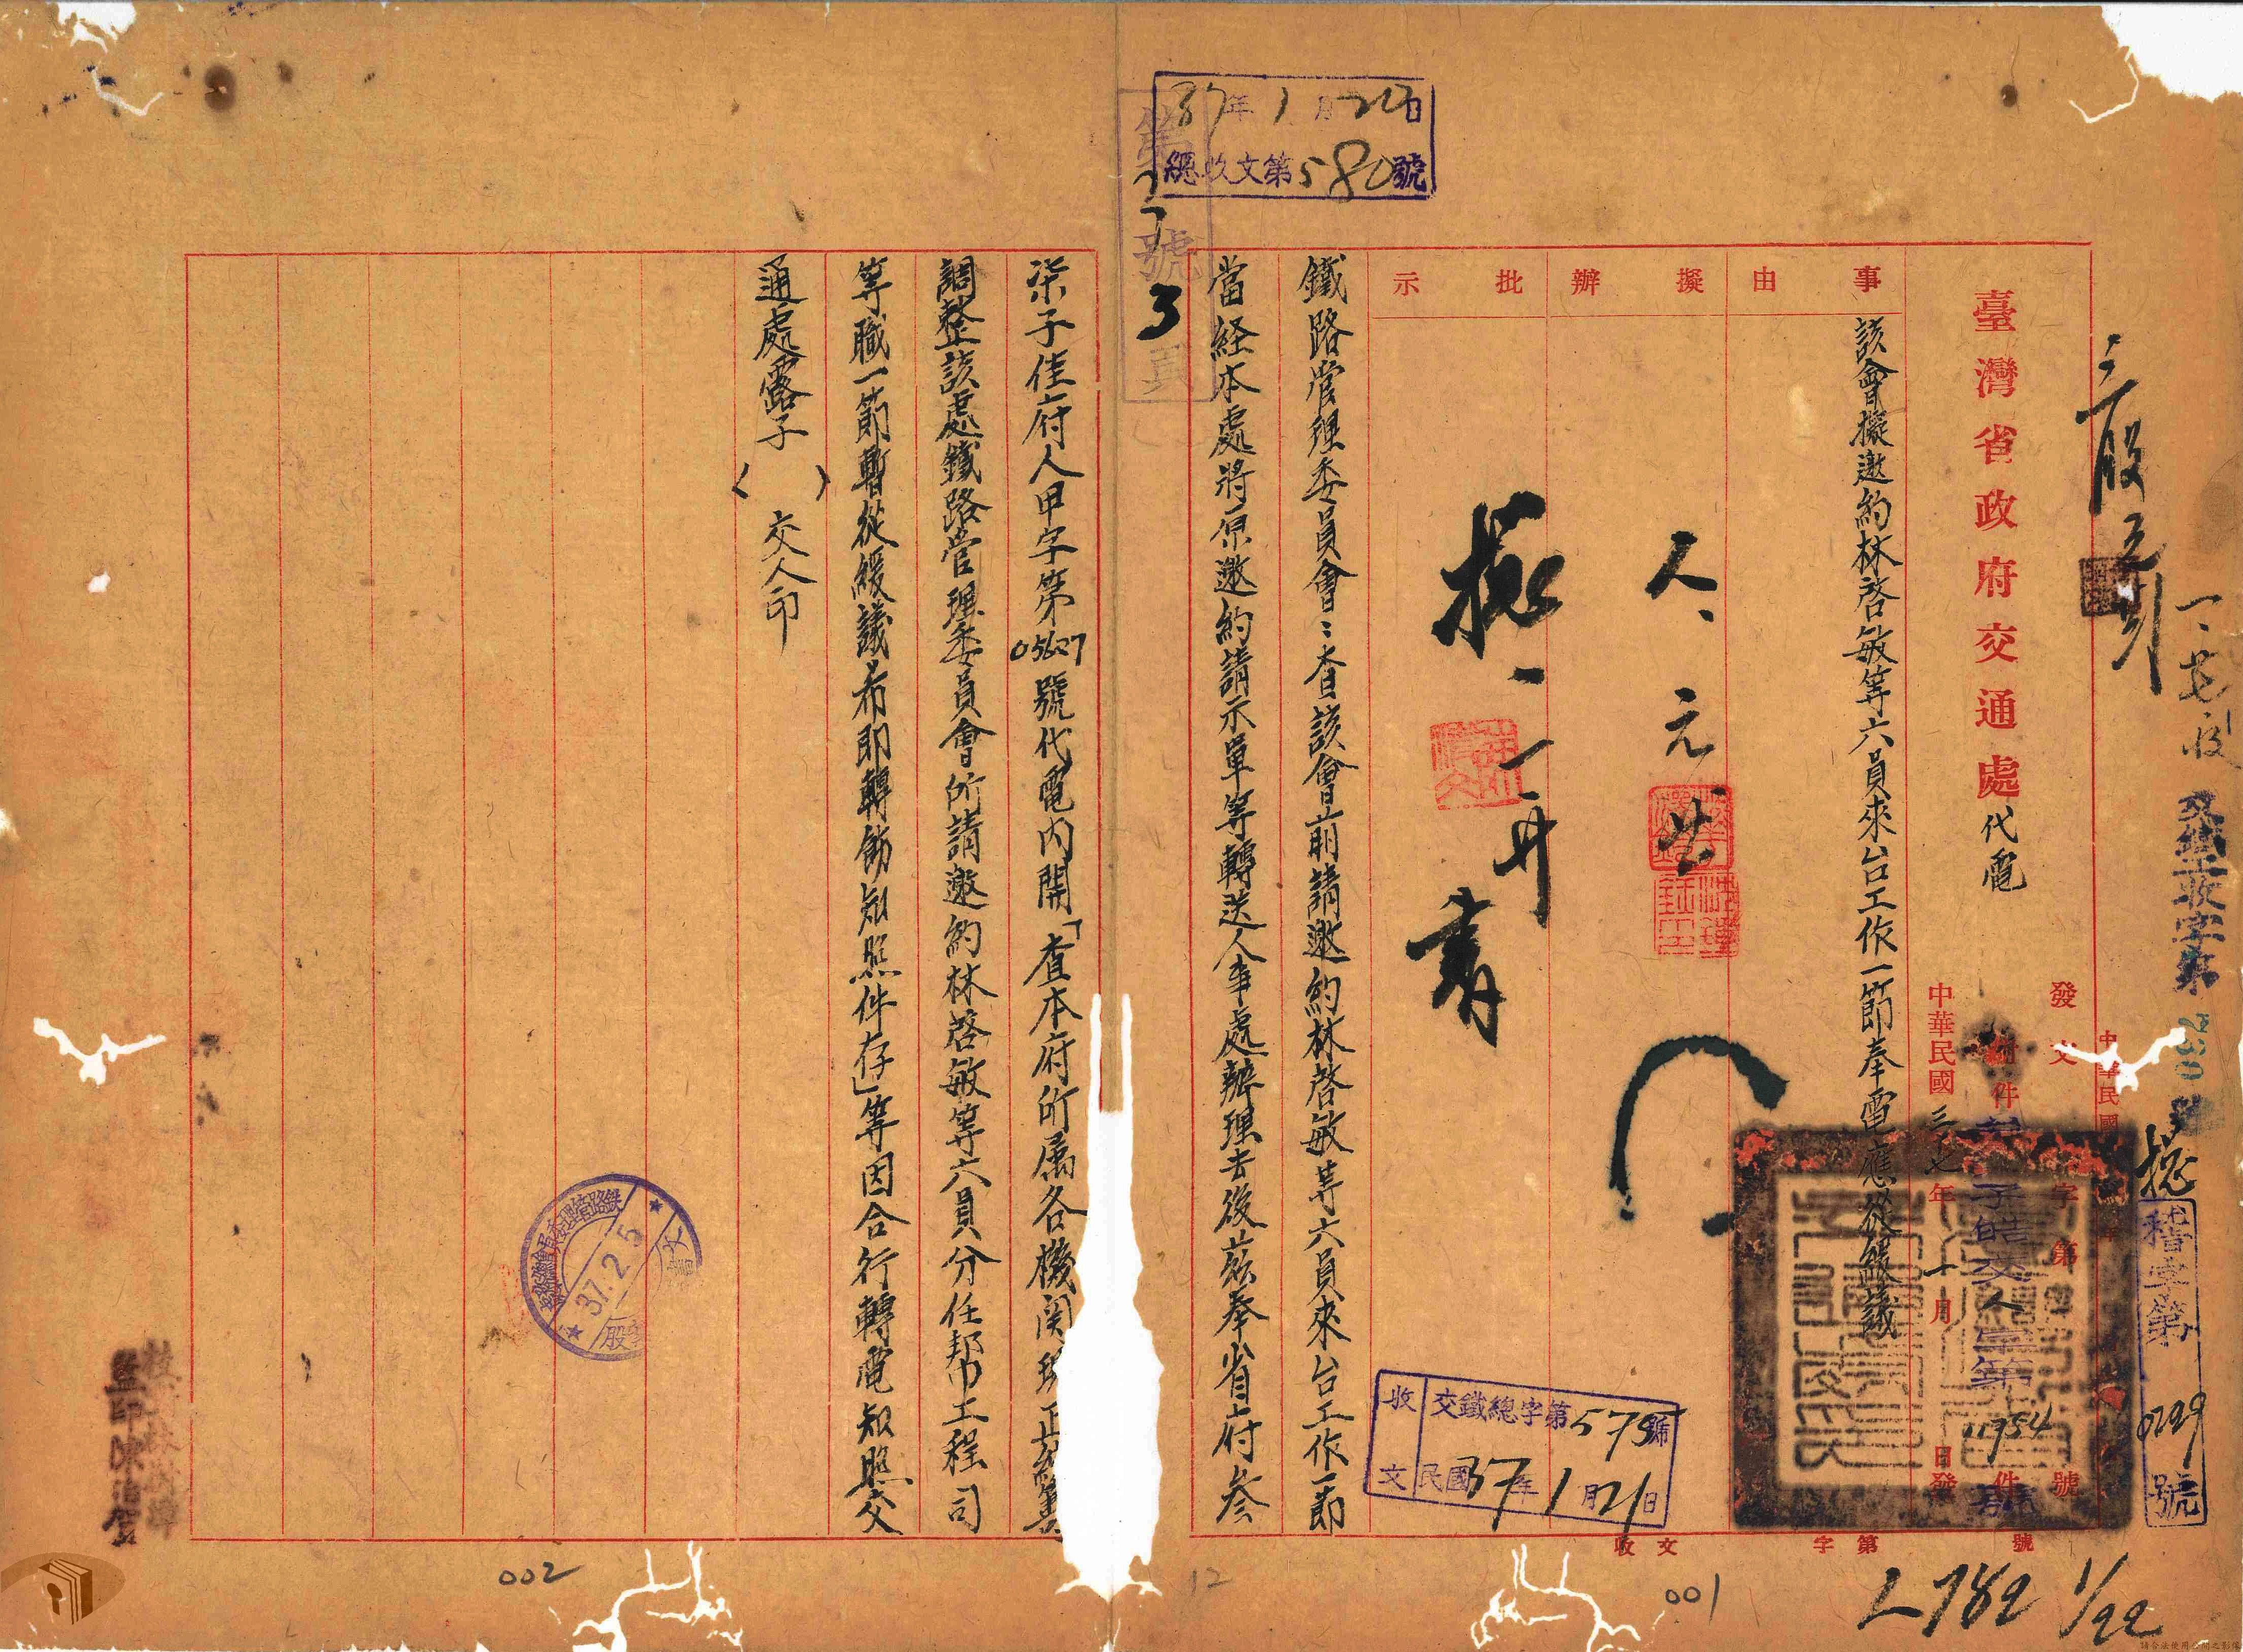 37年1月20日
總收文第580號
第 號 3頁
臺灣省政府交通處代電
事由
擬辦
批示
該會擬邀約林啓敏等六員來台工作一節奉電應從緩議
發文
附件
中華民國三七年一月 日發
子皓交人 字第11954號
鐵路管理委員會：查該會前請邀約林啓敏等六員來台工作一節
當経本處將原邀約請示單等轉送人事處辦理去後茲奉省府叄
柒子佳府人甲字第05627號代電內開「查本府所屬各機関現正緊
調整該處鐵路管理委員會所請邀約林啓敏等六員分任幫工程司
等職一節暫從緩議希即轉飭知照件存」等因合行轉電知照交
通處露子（ ）交人印
收文
交鐵總字第579號
民國37年1月21日
交鐵工收字第 號
稽字第0299號
收文 字第 號
37.2.5
監印
001
002
12
L782 1/22